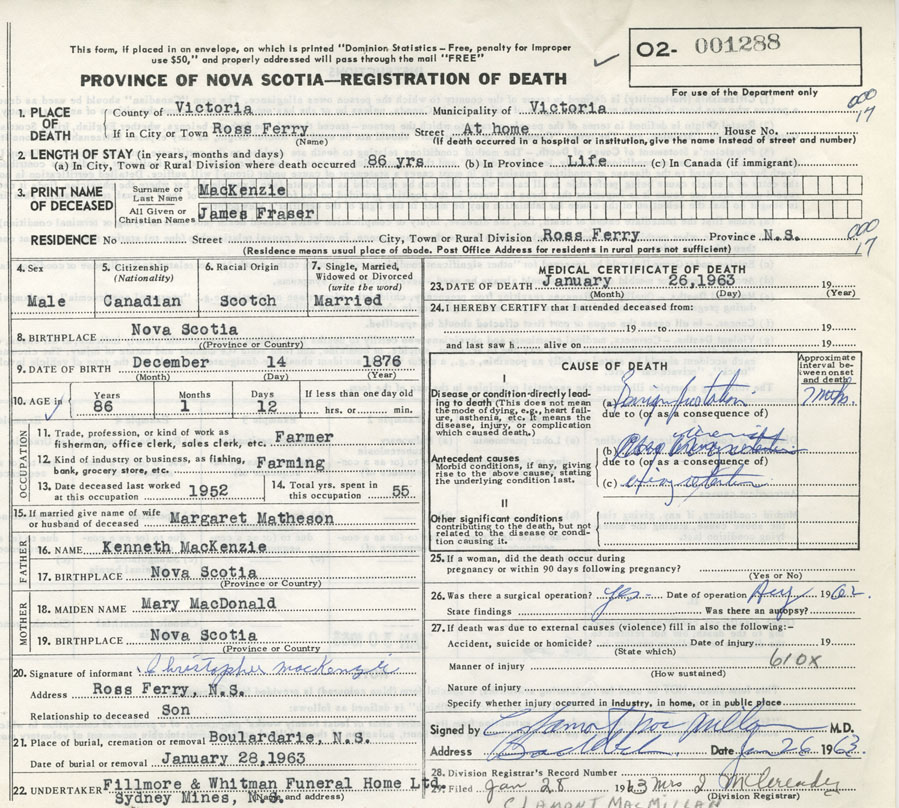 This form, if placed in an envelope, on which is printed "Dominion Statistics – Free, penalty for improper
use $50," and properly addressed will pass through the mail "FREE"
O2- 001288
PROVINCE OF NOVA SCOTIA—REGISTRATION OF DEATH
For use of the Department only
1. PLACE OF DEATH
County of Victoria Municipality of Victoria
000
17
If in City or Town Ross Ferry Street At home House No.
(Name) (If death occurred in a hospital or institution, give the name instead of street and number)
2. LENGTH OF STAY (in years, months and days)
(a) In City, Town or Rural Division where death occurred 86 yrs (b) In Province Life (c) In Canada (if immigrant)
3. PRINT NAME OF DECEASED
Surname or Last Name MacKenzie
All Given or Christian Names James Fraser
RESIDENCE No Street City, Town or Rural Division Ross Ferry Province N.S.
000
17
(Residence means usual place of abode. Post Office Address for residents in rural parts not sufficient)
4. Sex
Male
5. Citizenship
(Nationality)
Canadian
6. Racial Origin
Scotch
7. Single, Married,
Widowed or Divorced
(write the word)
Married
8. BIRTHPLACE Nova Scotia
(Province or Country)
9. DATE OF BIRTH December 14 1876
(Month) (Day) (Year)
10. AGE in
Years 86
Months 1
Days 12
If less than one day old
hrs. or min.
OCCUPATION
11. Trade, profession, or kind of work as
fisherman, office clerk, sales clerk, etc. Farmer
12. Kind of industry or business, as fishing,
bank, grocery store, etc. Farming
13. Date deceased last worked
at this occupation 1952
14. Total yrs. spent in
this occupation 55
15. If married give name of wife
or husband of deceased Margaret Matheson
FATHER
16. NAME Kenneth MacKenzie
17. BIRTHPLACE Nova Scotia
(Province or Country)
MOTHER
18. MAIDEN NAME Mary MacDonald
19. BIRTHPLACE Nova Scotia
(Province or Country)
20. Signature of informant Christopher MacKenzie
Address Ross Ferry, N.S.
Relationship to deceased Son
21. Place of burial, cremation or removal Boulardarie, N.S.
Date of burial or removal January 28,1963
22. UNDERTAKER Fillmore & Whitman Funeral Home Ltd
Sydney Mines, N.S.
(Name and address)
MEDICAL CERTIFICATE OF DEATH
23. DATE OF DEATH January 26,1963 19
(Month) (Day) (Year)
24. I HEREBY CERTIFY that I attended deceased from:
19 to 19
and last saw h alive on 19
CAUSE OF DEATH
Approximate
interval be-
tween onset
and death
I
Disease or condition directly lead-
ing to death (This does not mean
the mode of dying, e.g., heart failure,
asthenia, etc. It means the
disease, injury, or complication
which caused death.)
(a)
due to (or as a consequence of)
Antecedent causes
Morbid conditions, if any, giving
rise to the above cause, stating
the underlying condition last.
(b)
due to (or as a consequence of)
(c) retention
II
Other significant conditions
contributing to the death, but not
related to the disease or condi-
tion causing it.
25. If a woman, did the death occur during
pregnancy or within 90 days following pregnancy?
(Yes or No)
26. Was there a surgical operation? yes Date of operation Aug 1962.
State findings Was there an autopsy?
27. If death was due to external causes (violence) fill in also the following:-
Accident, suicide or homicide? Date of injury 19
(State which)
Manner of injury 610X
(How sustained)
Nature of injury
Specify whether injury occurred in industry, in home, or in public place
Signed by M.D.
Address Baddeck Date Jan 26 1963
28. Division Registrar's Record Number
29. Filed Jan 28 1963 Mrs J McCready
(Division Registrar)
CLAMONT MACMILLAN